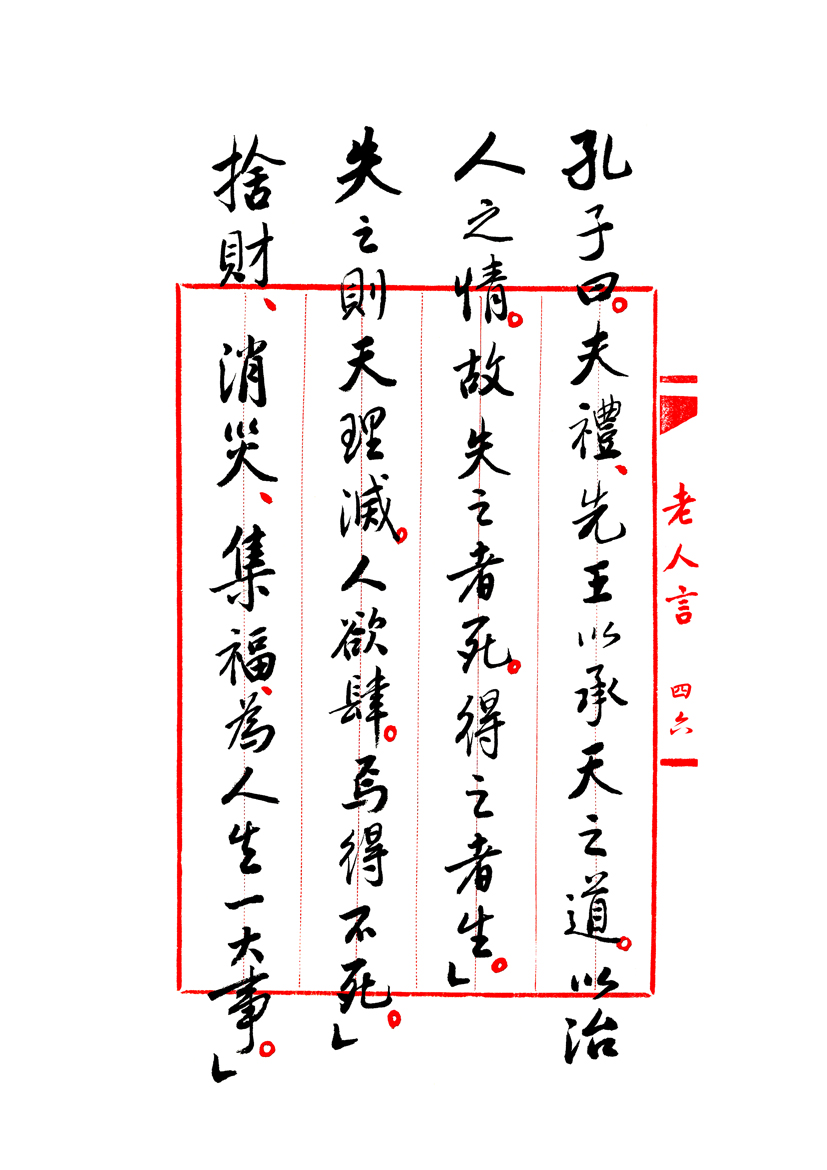 孔子曰。夫禮、先王以承天之道。以治
人之情。故失之者死。得之者生。」
失之則天理滅。人欲肆。焉得不死。」
捨財、消災、集福、為人生一大事。」
老人言 四六